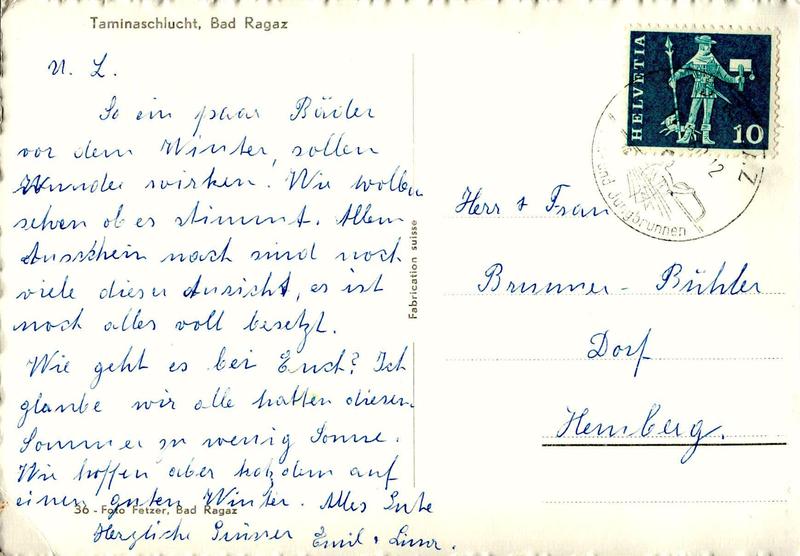 Taminaschlucht, Bad Ragaz
u. L.
So ein paar Bäder
vor dem Winter, sollen
Wunder wirken! Wir wollen
sehen ob es stimmt. Allem
Anschein nach sind noch
viele dieser Ansicht, es ist
noch alles voll besetzt.
Wie geht es bei Euch? Ich
glaube wir alle hatten diesen
Sommer zu wenig Sonne.
Wir hoffen aber trotzdem auf
einen guten Winter. Alles Gute
Herzliche Grüsse Emil +
36 - Foto Fetzer, Bad Ragaz
Fabrication suisse
HELVETIA
10
und Jungbrunnen
Herr & Frau
Brunner - Bühler
Dorf
Hemberg.